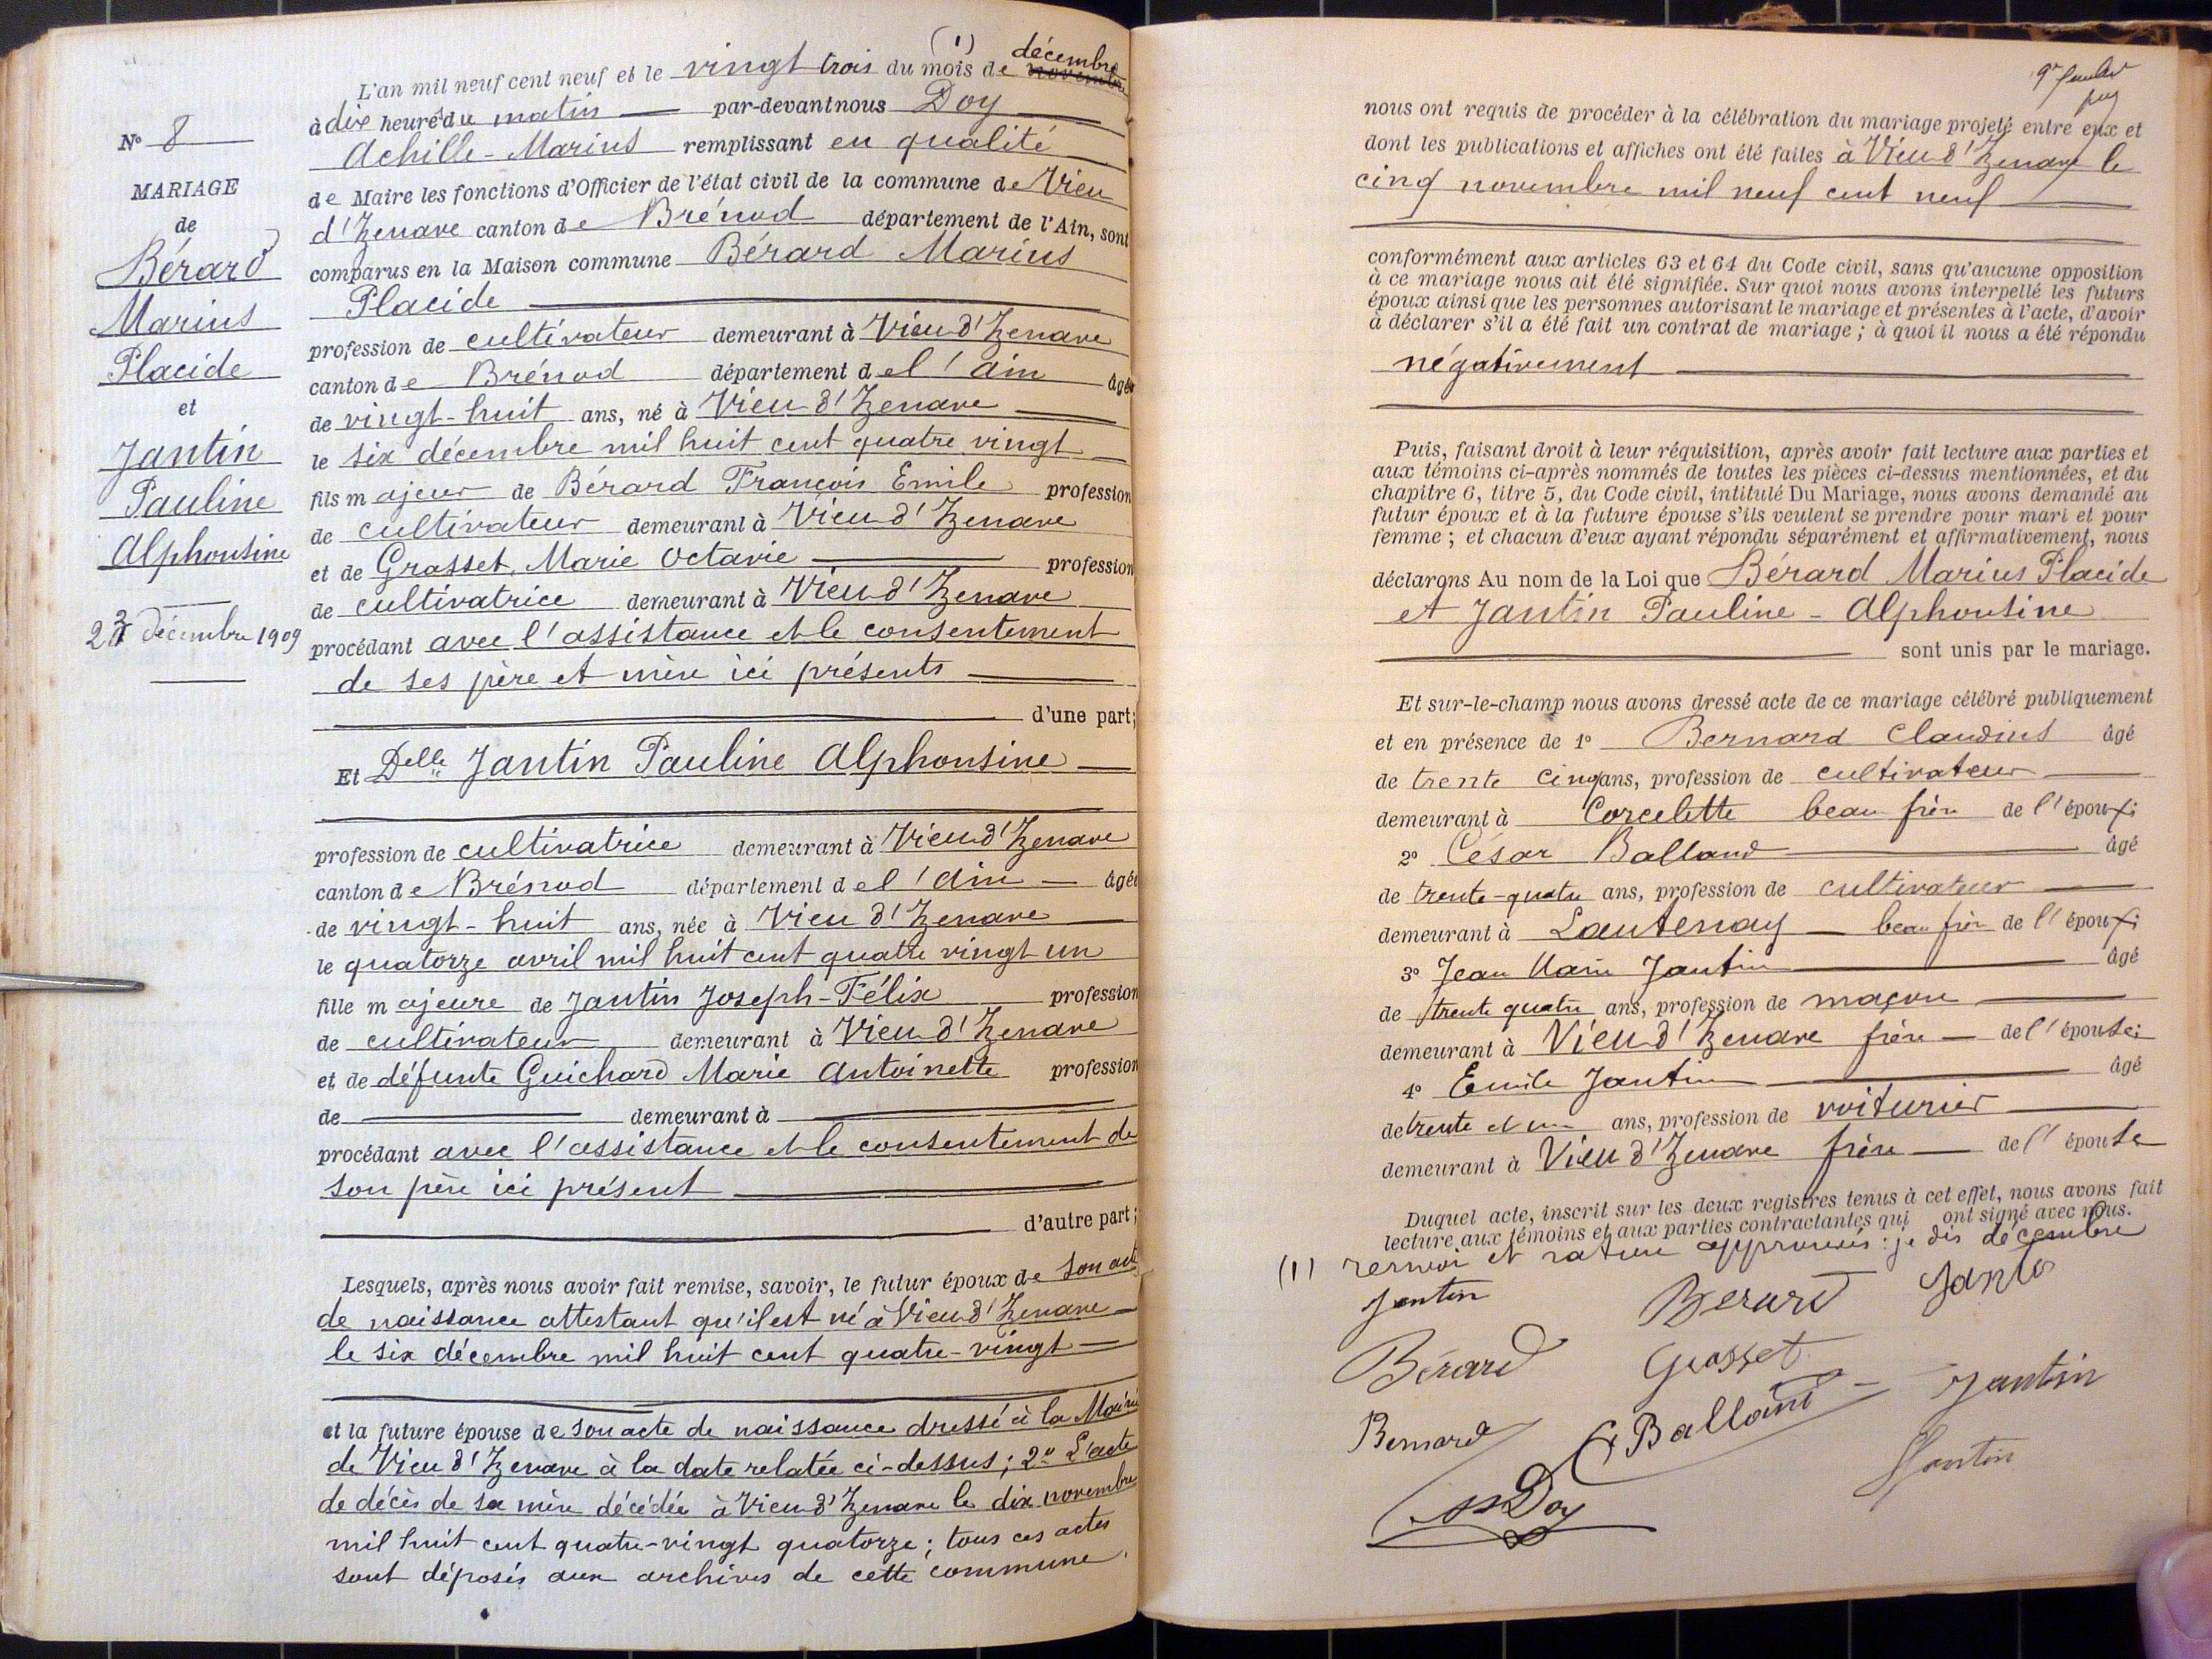 N° 8
MARIAGE
de
Bérard
Marius
Placide
et
Jantin
Pauline
Alphonsine
23 décembre 1909
(1) décembre
L'an mil neuf cent neuf et le vingt trois du mois de novembre
à dix heures du matin par-devant nous Doy
Achille-Marius remplissant en qualité
de Maire les fonctions d'Officier de l'état civil de la commune de Vieu
d'Izenave canton de Brénod département de l'Ain, sont
comparus en la Maison commune Bérard Marius
Placide
profession de cultivateur demeurant à Vieu d'Izenave
canton de Brénod département de l'Ain âgé
de vingt-huit ans, né à Vieu d'Izenave
le six décembre mil huit cent quatre vingt
fils majeur de Bérard François Emile profession
de cultivateur demeurant à Vieu d'Izenave
et de Grasset, Marie Octavie profession
de cultivatrice demeurant à Vieu d'Izenave
procédant avec l'assistance et le consentement
de ses père et mère ici présents
d'une part;
Et Delle Jantin Pauline Alphonsine
profession de cultivatrice demeurant à Vieu d'Izenave
canton de Brénod département de l'Ain âgée
de vingt-huit ans, née à Vieu d'Izenave
le quatorze avril mil huit cent quatre vingt un
fille majeure de Jantin Joseph-Félix profession
de cultivateur demeurant à Vieu d'Izenave
et de défunte Guichard Marie Antoinette profession
de demeurant à
procédant avec l'assistance et le consentement de
son père ici présent
d'autre part;
Lesquels, après nous avoir fait remise, savoir, le futur époux de son acte
de naissance attestant qu'il est né à Vieu d'Izenave
le six décembre mil huit cent quatre-vingt
et la future épouse de son acte de naissance dressé à la Mairie
de Vieu d'Izenave à la date relatée ci-dessus; 2° L'acte
de décès de sa mère décédée à Vieu d'Izenave le dix novembre
mil huit cent quatre-vingt quatorze; tous ces actes
sont déposés aux archives de cette commune.
nous ont requis de procéder à la célébration du mariage projeté entre eux et
dont les publications et affiches ont été faites à Vieu d'Izenave le
cinq novembre mil neuf cent neuf
conformément aux articles 63 et 64 du Code civil, sans qu'aucune opposition
à ce mariage nous ait été signifiée. Sur quoi nous avons interpellé les futurs
époux ainsi que les personnes autorisant le mariage et présentes à l'acte, d'avoir
à déclarer s'il a été fait un contrat de mariage; à quoi il nous a été répondu
négativement
Puis, faisant droit à leur réquisition, après avoir fait lecture aux parties et
aux témoins ci-après nommés de toutes les pièces ci-dessus mentionnées, et du
chapitre 6, titre 5, du Code civil, intitulé Du Mariage, nous avons demandé au
futur époux et à la future épouse s'ils veulent se prendre pour mari et pour
femme; et chacun d'eux ayant répondu séparément et affirmativement, nous
déclarons Au nom de la Loi que Bérard Marius Placide
et Jantin Pauline-Alphonsine
sont unis par le mariage.
Et sur-le-champ nous avons dressé acte de ce mariage célébré publiquement
et en présence de 1° Bernard Claudius âgé
de trente cinq ans, profession de cultivateur
demeurant à Corcelette beau frère de l'époux;
2° César Balland âgé
de trente-quatre ans, profession de cultivateur
demeurant à Lantenay beau frère de l'époux;
3° Jean Marie Jantin âgé
de trente quatre ans, profession de maçon
demeurant à Vieu d'Izenave frère de l'épouse;
4° Emile Jantin âgé
de trente et un ans, profession de voiturier
demeurant à Vieu d'Izenave frère de l'épouse
Duquel acte, inscrit sur les deux registres tenus à cet effet, nous avons fait
lecture aux témoins et aux parties contractantes qui ont signé avec nous.
(1) renvoi et rature approuvés: je dis décembre
Jantin Berard Jantin
Bérard Grasset Jantin
Bernard C Balland Jantin
Doy